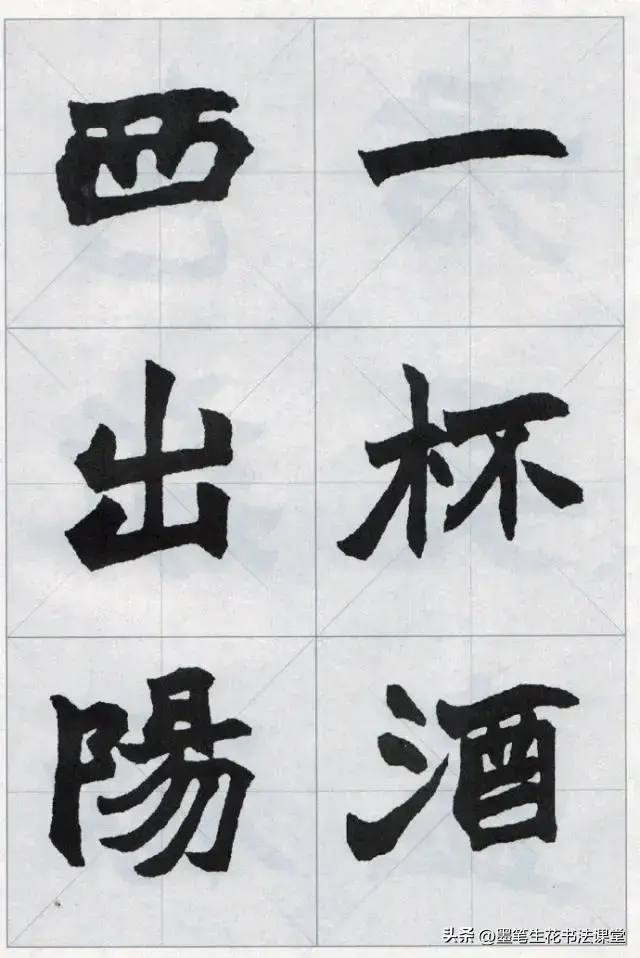 一杯酒
西出陽
头条 @墨笔生花书法课堂